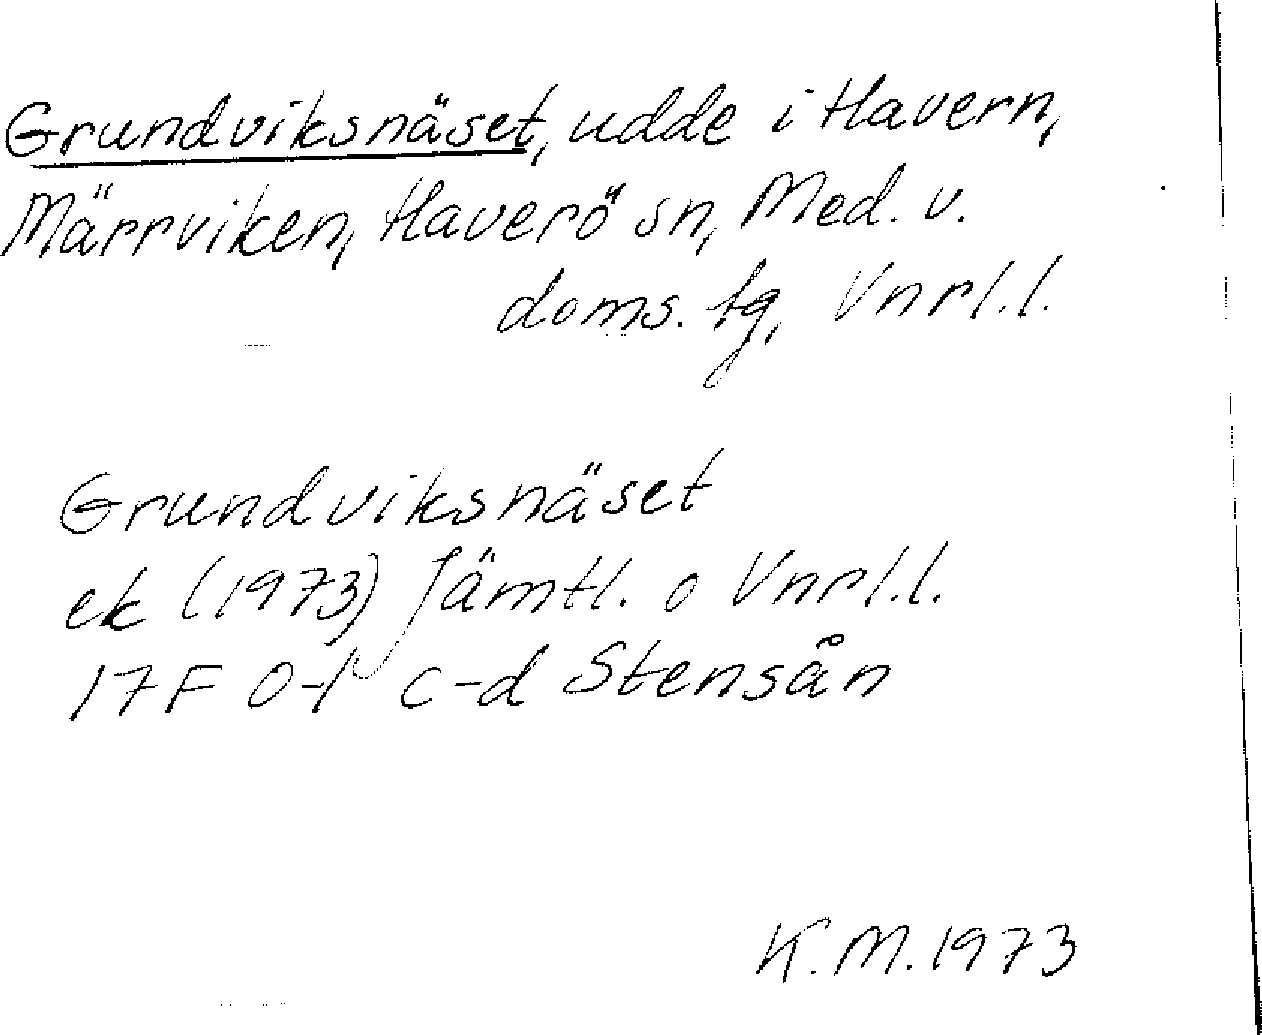 Grundviksnäset, udde i Havern,
Märrviken, Haverö sn, Med. v.
doms. tg, Vnrl.l.
Grundviksnäset
ek (1973) Jämtl. o Vnrl.l.
17F 0-1 c-d Stensån
K.M. 1973